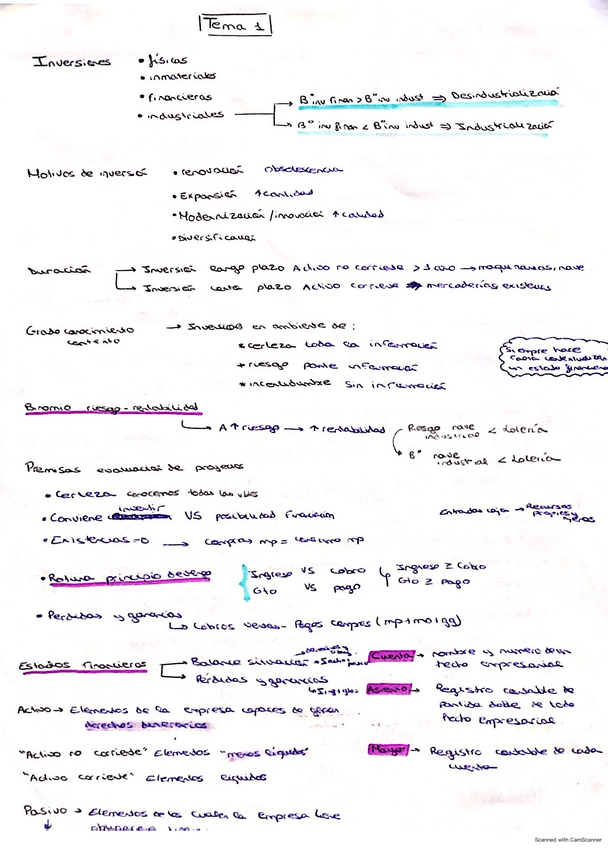 Tema 1
Inversiones • físicas
• inmateriales
• financieras
• industriales
Bº inv finan > Bº inv indust ⇒ Desindustrialización
Bº inv finan < Bº inv indust ⇒ Industrialización
Motivos de inversión • renovación obsolescencia
• Expansión ↑cantidad
• Modernización / innovación ↑ calidad
• Diversificación
Duración → Inversión largo plazo Activo no corriente > 1 año → maquinarias, nave
→ Inversión corto plazo Activo corriente → mercaderías, existencias
Grado conocimiento contexto → Inversiones en ambiente de :
* certeza toda la información
* riesgo parte información
* incertidumbre sin información
Siempre hace
falta contextualizar
un estado financiero
Binomio riesgo - rentabilidad
A ↑ riesgo → ↑ rentabilidad
Riesgo nave industrial < Lotería
Bº nave industrial < Lotería
Premisas evaluación de proyectos
• Certeza conocemos todas las vbles
• Conviene invertir VS posibilidad financiación
Entradas caja → Recursos propios y ajenos
• Existencias = 0 → compras mp = consumo mp
• Rotura principio devengo
Ingreso VS cobro
Gto VS pago
Ingreso ≥ Cobro
Gto ≥ Pago
• Perdidas y ganancias
→ Cobros ventas - Pagos compras (mp + mo + gg)
Estados financieros → Balance situación
→ Pérdidas y ganancias
Cuenta → nombre y numero de un
hecho empresarial
Asiento → Registro contable de
partida doble de todo
hecho empresarial
Activo → Elementos de la empresa capaces de generar
derechos dinerarios
"Activo no corriente" Elementos "menos líquidos"
Mayor → Registro contable de cada
cuenta
"Activo corriente" Elementos líquidos
Pasivo → Elementos de los cuales la empresa tiene
Scanned with CamScanner